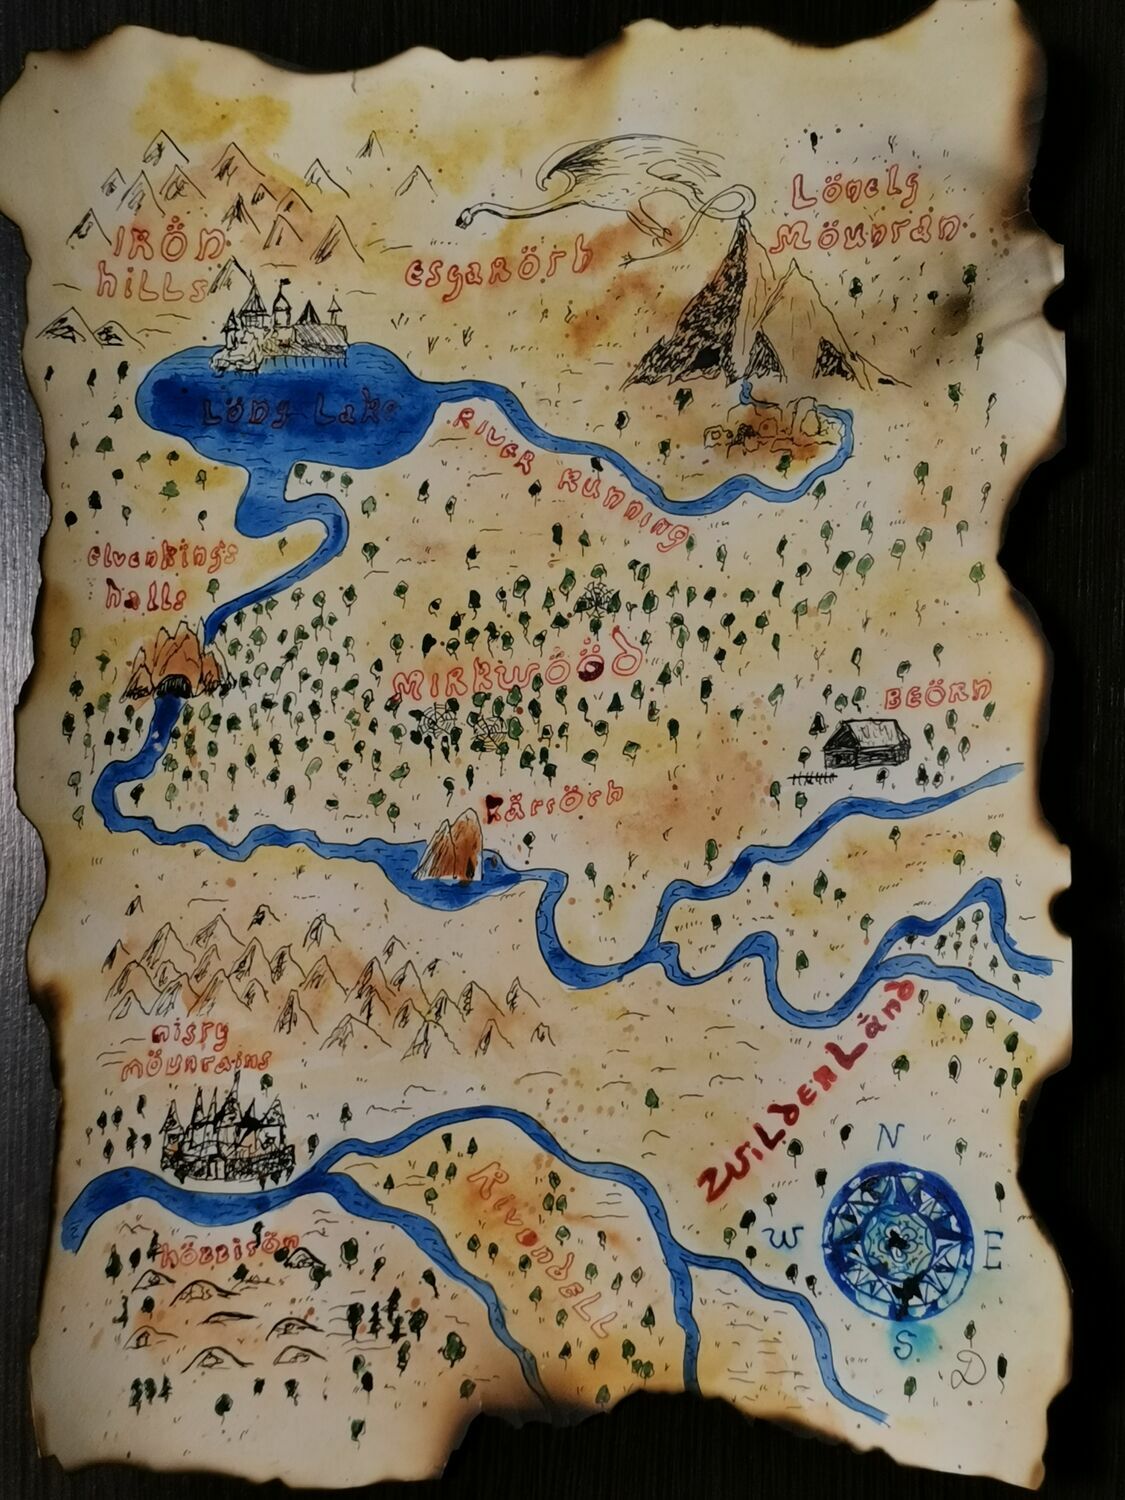 Lönely
Möuntän
IRÖN
hiLLs
esgaröth
Löng Lake
RiVER RUNNiNg
elvenkings
halls
MIRKWÖÖD
BEÖRN
Kärröck
misty
möuntains
WiLDERLänd
N
W
E
S
RivendELL
höbbitön
D